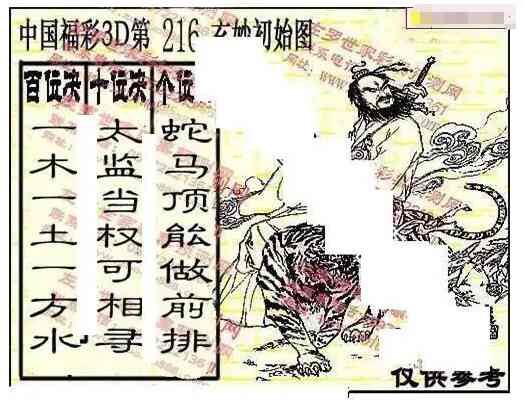 中国福彩3D第 216 玄妙初始图
百位决
一木一土一方水
十位决
太监当权可相寻
个位
蛇马顶能做前排
仅供参考